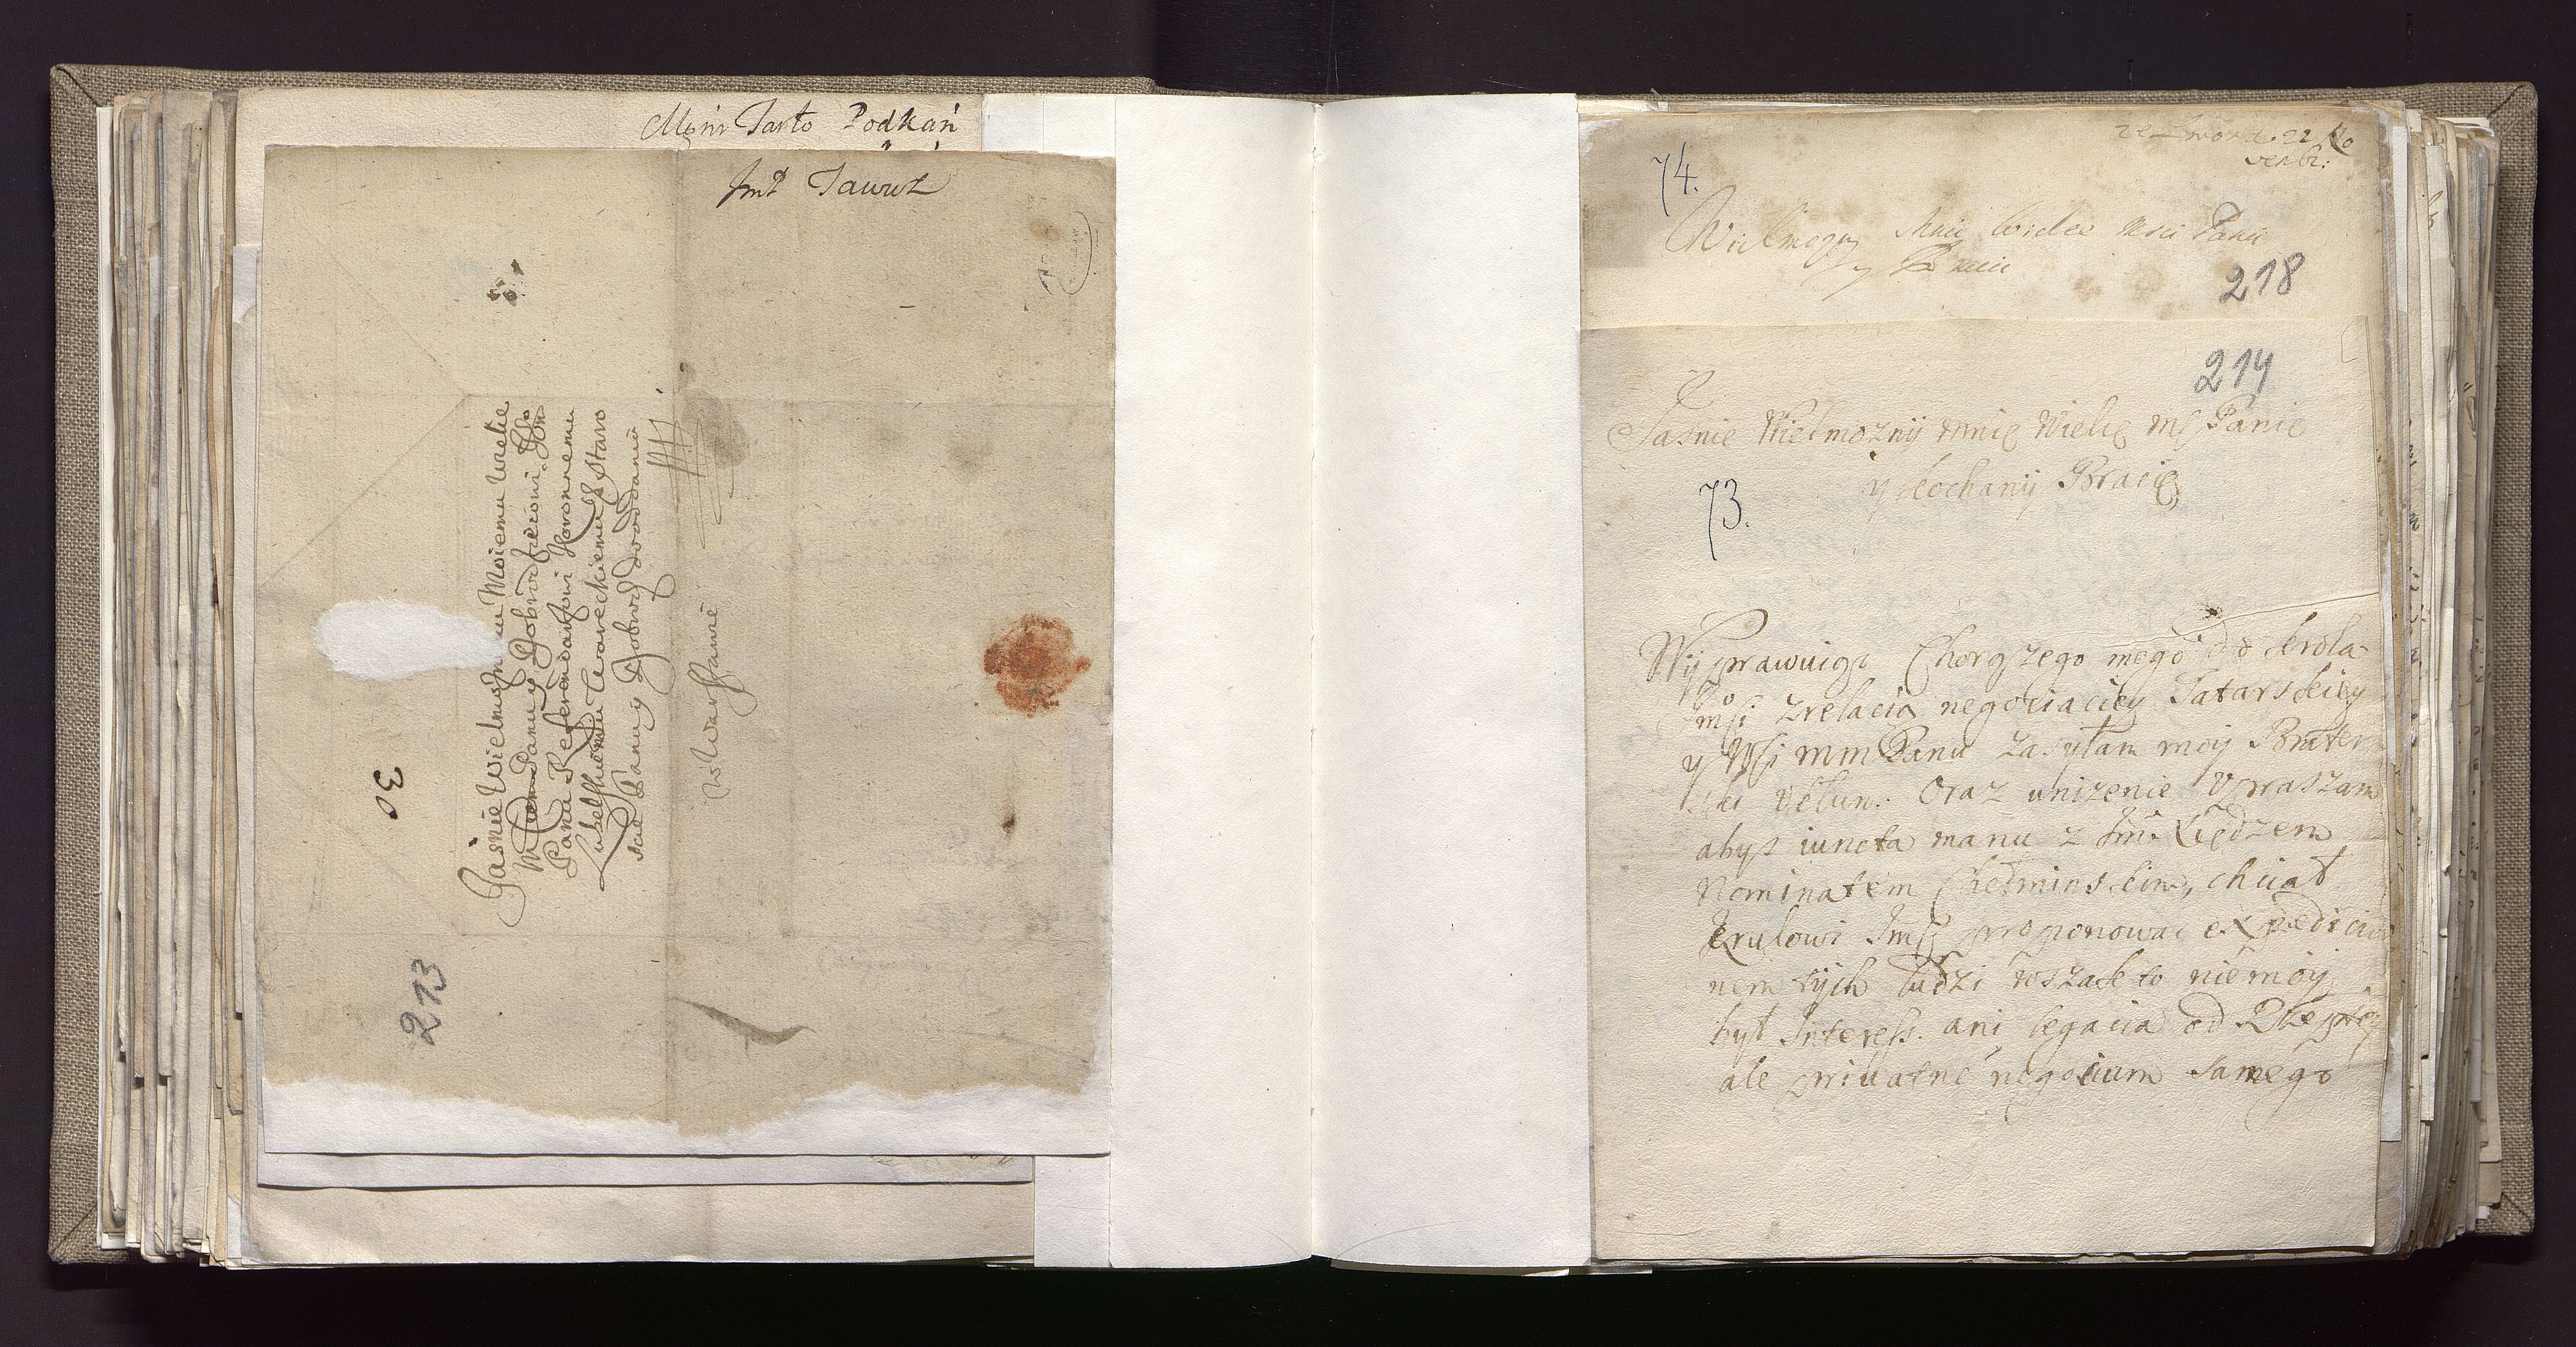 Mgnr Tarło Podkan
Jmt Tawuł
Jasnie Wielmożnemu Moiemu Wielce
Mżem Panu y Dobrodzieiowi JE°
Panu Referendarzowi Koronnemu
Lubelskiemu Wareckiemu Staro
scie Panu y Dobrodz
w Warszawie
30
213
ze Lwowa 22
74.
Wielmozny Mnie Wielce Msci Panie
y Bracie
218
214
Jasnie Wielmoznÿ mnie Wielce Msc Panie
y kochanÿ Bracie
73.
Wÿprawuiąc Chorązego mego do krola
Jmsci z relacią negociaciey Tatarskiey
y Wsci mm Panu zasyłam moÿ Brater
ski vkłun. oraz unizenie vpraszam
abys iuncta manu z Jmc. Xiędzem
Nominatem Chełminskim, chciał
krulowi Jmsci proponowac expedicio
nem tÿch ludzi wszak to nie moÿ
był Interess. ani legacia od Rhepptey
ale priuatne negocium samego